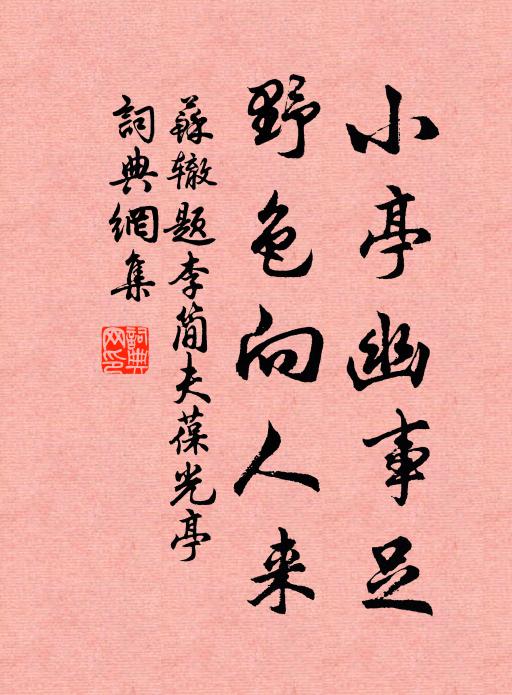 小亭幽事足
野色向人来
蘇辙题李简夫葆光亭
詞典網集
詞典网印